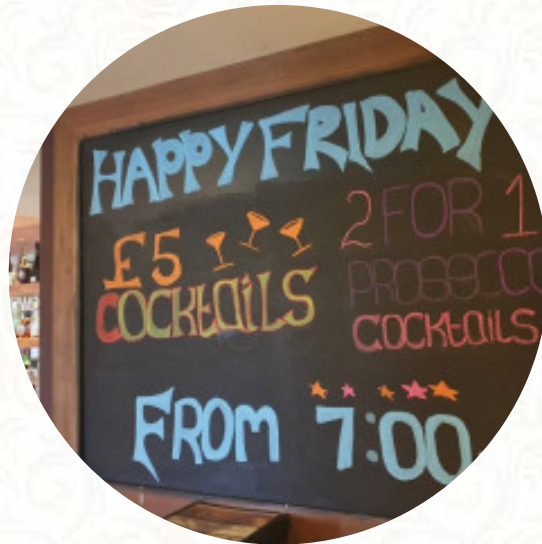 HAPPY FRIDAY
£5
COCKtAiLS
2 FOR 1
PROSECCO
COCKtAiLS
FROM 7:00